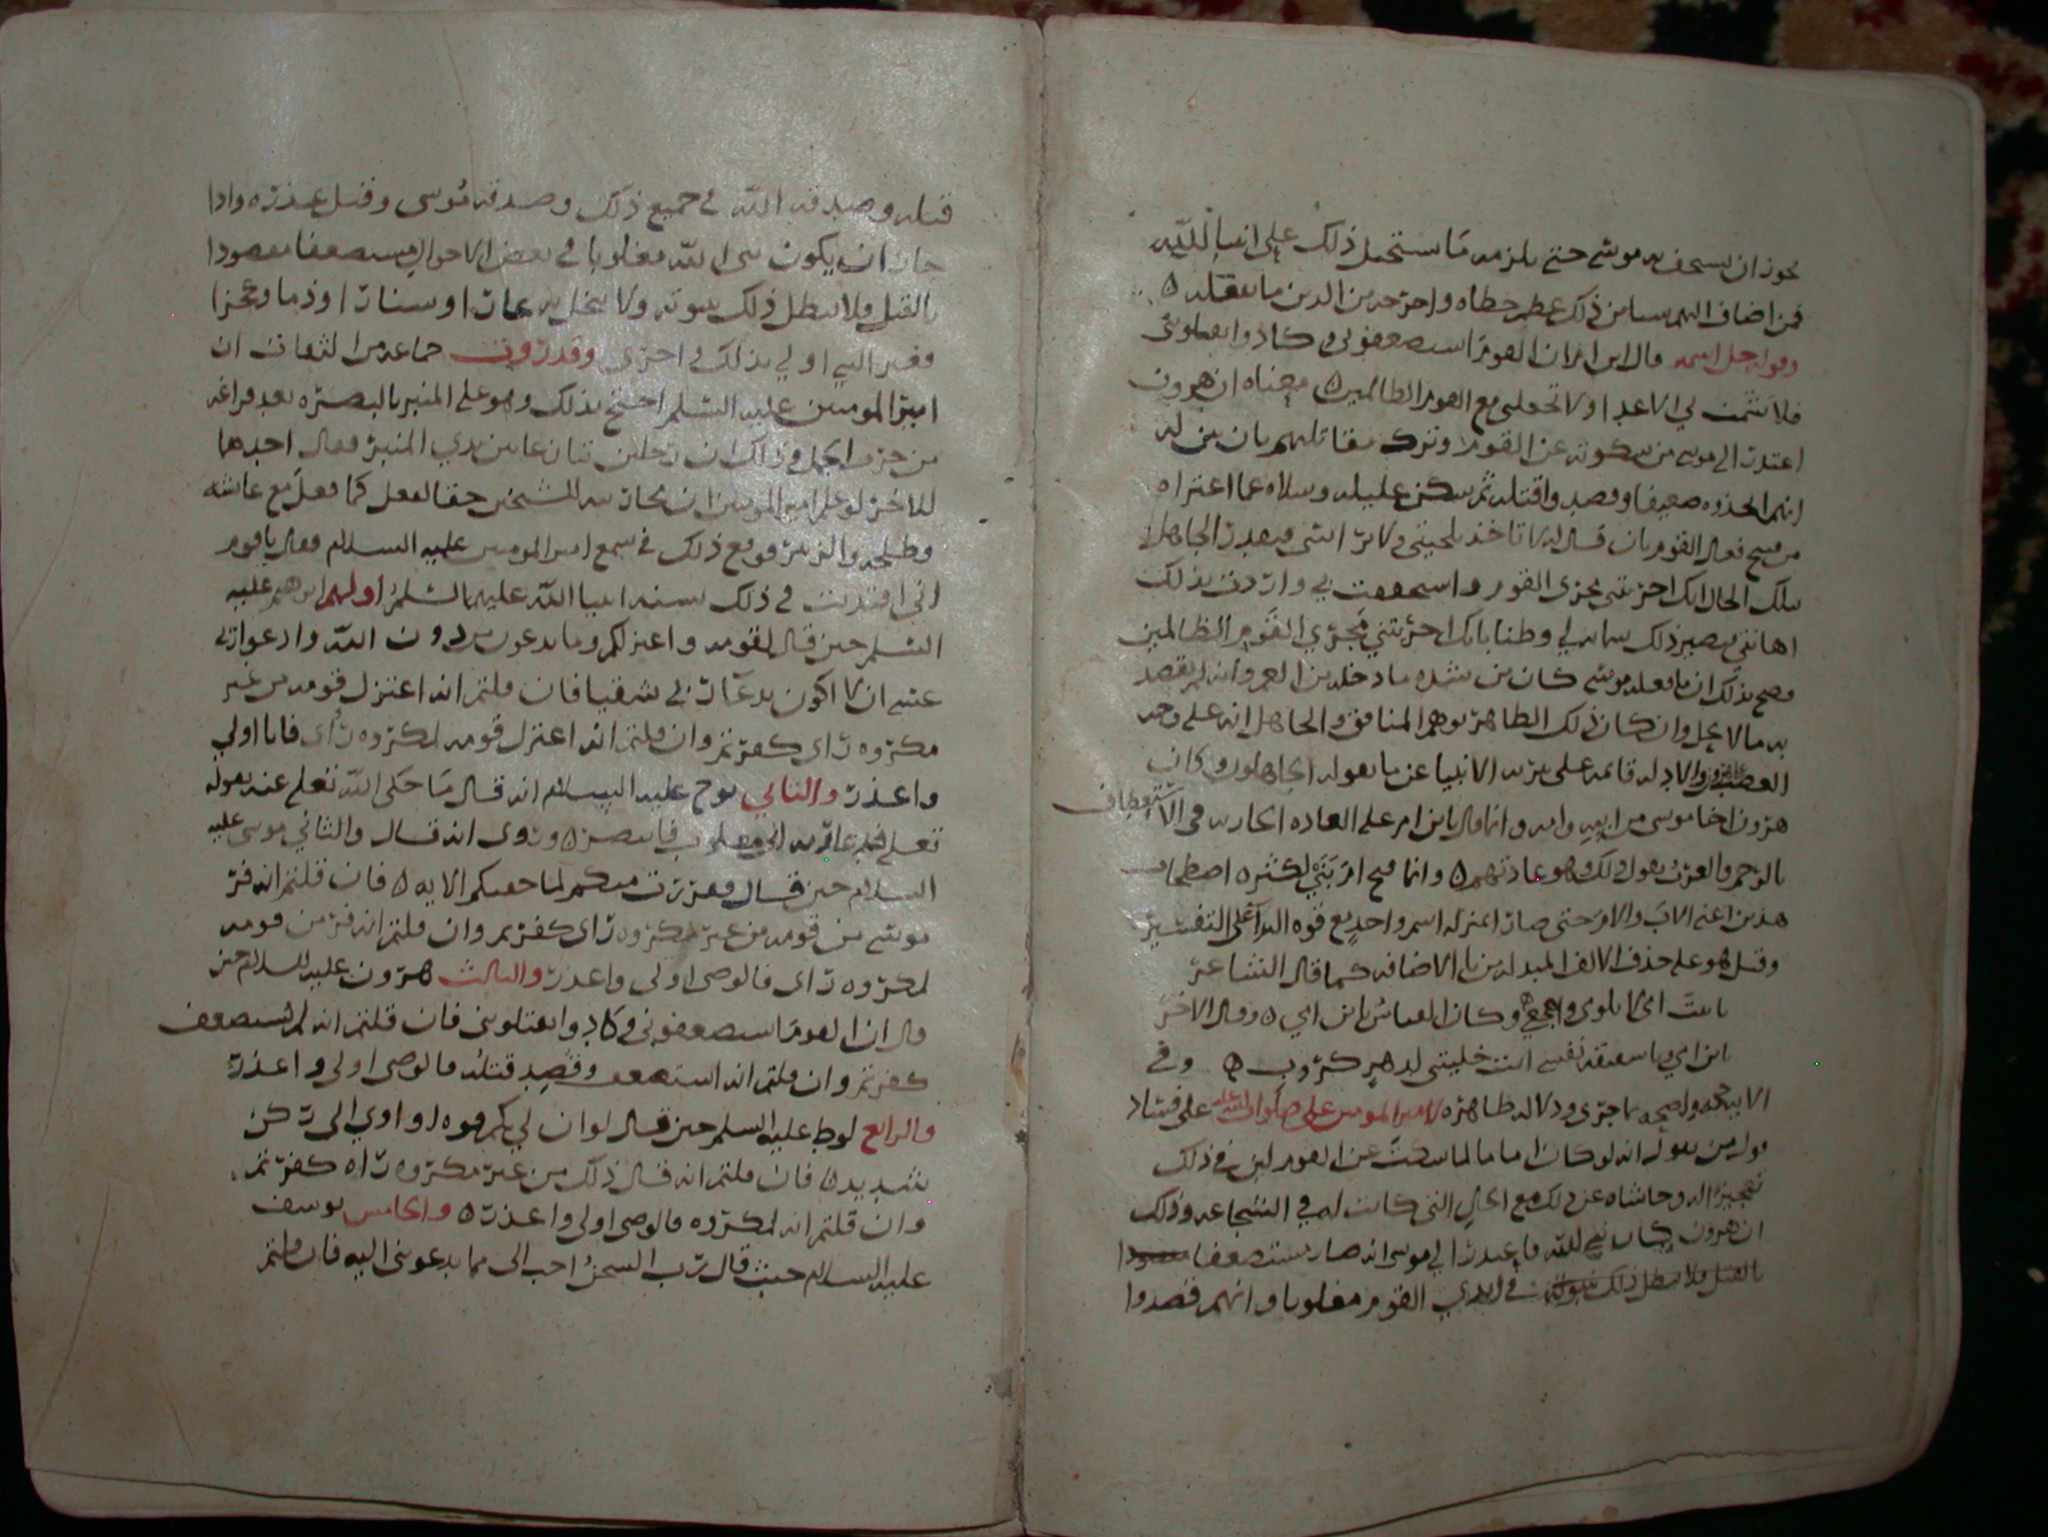 يجوز ان يستخف به موسى حتى يلزمه ما يستحيل ذلك على انبيا الله
فمن اضاف اليهم شيا من ذلك عظم خطاه واخرجه من الدين ما يعقله ه
وقوله جل اسمه قال ابن ام ان القوم استضعفوني وكادوا يقتلونني
فلا تشمت بي الاعدا ولا تجعلني مع القوم الظالمين ه معناه ان هرون
اعتذر الى موسى من سكوته عن القوم وترك مقاتلتهم بان بين له
انهم اتخذوه ضعيفا وقصدوا قتله ثم سكن عليله وسلاه عما اعتراه
من قبيح فعال القوم بان قال له لا تاخذ بلحيتي ولا براسي فيقدر الجاهل
بتلك الحال انك اخزيتني بخزي القوم واستخففت بي واردت بذلك
اهانتي فيصير ذلك شماته لي وظنا بانك اخزيتني مجزى القوم الظالمين
فصح بذلك ان ما فعله موسى كان من شده ما دخله من الغم وانه لم يقصد
به ما لا يحل وان كان ذلك الظاهر يوهم المنافق والجاهل انه على وجه
الغضب والادله قائمه على تنزيه الانبيا عن ما يقوله الجاهلون وكان
هرون اخا موسى من ابيه وامه وانما قال يا ابن ام على العاده الجاريه في الاستعطاف
بالرحم والعرب يقول ذلك وهو عادتهم ه وانما فتح ام لكثره اصطحاب
هذين اعني الاب والام حتى صارا بمنزله اسم واحد مع قوه الندا على التغيير
وقيل هو على حذف الالف المبدله من يا الاضافه كما قال الشاعر
يا بنت امي لا تلومي واهجعي وكان العباس يا ابن امي ه وقال الاخر
يا ابن امي ويا شقيق نفسي انت خليتني لدهر كروب ه وفي
الايه حجه واضحه بما جرى ودلاله ظاهره لامير المومنين علي صلوات الله عليه على فساد
قول من يقول انه لو كان اماما لما سكت عن القوم لان في ذلك
تعجيزا له وحاشاه عن ذلك مع الحال التي كانت له في الشجاعه وذلك
ان هرون كان نبي لله فاعتذر الى موسى انه صار مستضعفا
في ايدي القوم مغلوبا وانهم قصدوا
قتله وصدقه الله في جميع ذلك وصدقه موسى وقبل عذره واذا
جاز ان يكون نبي الله مغلوبا في بعض الاحوال مستضعفا مقصودا
بالقتل ولا يبطل ذلك نبوته ولا يدخل به عارا وشنارا وذما وعجزا
فغير النبي اولى بذلك واحرى وقد روت جماعه من الثقات ان
امير المومنين عليه السلم احتج بذلك وهو على المنبر بالبصره بعد فراغه
من حرب الجمل وذلك ان رجلين تنازعا بين يدي المنبر فقال احدهما
للاخر لو علم امير المومنين ان محاربه الشيخين حقا لفعل كما فعل مع عائشه
وطلحه والزبير فوقع ذلك في سمع امير المومنين عليه السلام فقال يا قوم
اني اقتديت في ذلك بسته انبيا الله عليهم السلم اولهم ابرهيم عليه
السلم حين قال لقومه واعتزلكم وما تدعون من دون الله وادعوا ربي
عسى ان لا اكون بدعا ربي شقيا فان قلتم انه اعتزل قومه من غير
مكروه راى كفرتم وان قلتم انه اعتزل قومه لمكروه راى فانا اولى
واعذر والثاني نوح عليه السلام انه قال ما حكى الله تعلى عنه بقوله
تعلى فدعا ربه اني مغلوب فانتصر ه وروي انه قال والثاني موسى عليه
السلام حين قال ففررت منكم لما خفتكم الايه ه فان قلتم انه فر
موسى من قومه من غير مكروه راى كفرتم وان قلتم انه فر من قومه
لمكروه راى فالوصي اولى واعذر والثالث هرون عليه السلام حين
قال ان القوم استضعفوني وكادوا يقتلونني فان قلتم انه لم يستضعف
كفرتم وان قلتم انه استضعف وقصد قتله فالوصي اولى واعذر
والرابع لوط عليه السلم حين قال لو ان لي بكم قوه او اوي الى ركن
شديد ه فان قلتم انه قال ذلك من غير مكروه راه كفرتم
وان قلتم انه لمكروه فالوصي اولى واعذر ه والخامس يوسف
عليه السلام حيث قال رب السجن احب الي مما يدعونني اليه فان قلتم